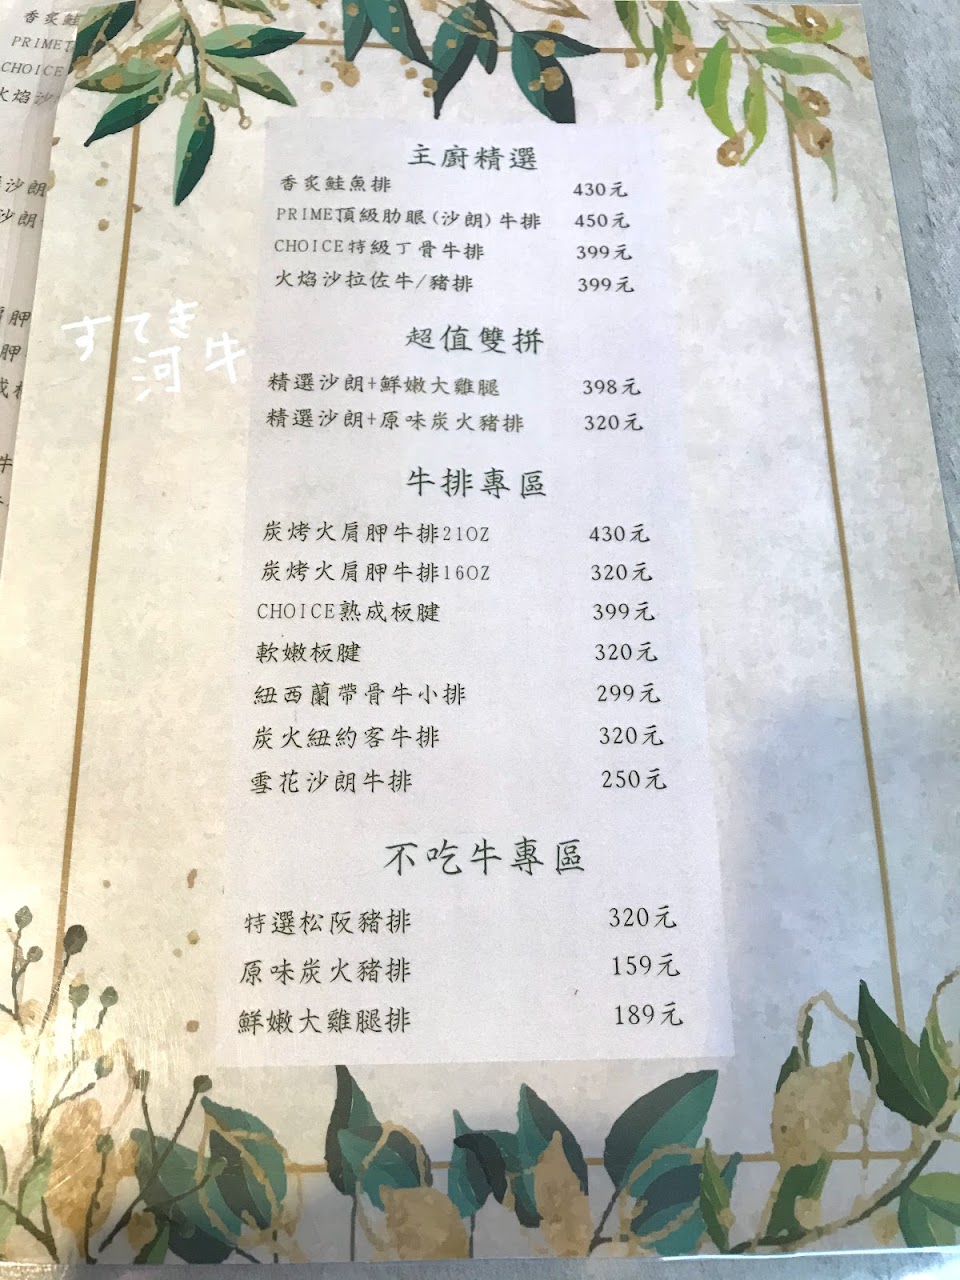 香炙鮭
PRIME
CHOICE
火焰沙
沙朗
沙朗
主廚精選
香炙鮭魚排 430元
PRIME頂級肋眼(沙朗)牛排 450元
CHOICE特級丁骨牛排 399元
火焰沙拉佐牛/豬排 399元
すてき
河牛
超值雙拼
精選沙朗+鮮嫩大雞腿 398元
精選沙朗+原味炭火豬排 320元
牛排專區
炭烤火肩胛牛排21OZ 430元
炭烤火肩胛牛排16OZ 320元
CHOICE熟成板腱 399元
軟嫩板腱 320元
紐西蘭帶骨牛小排 299元
炭火紐約客牛排 320元
雪花沙朗牛排 250元
不吃牛專區
特選松阪豬排 320元
原味炭火豬排 159元
鮮嫩大雞腿排 189元